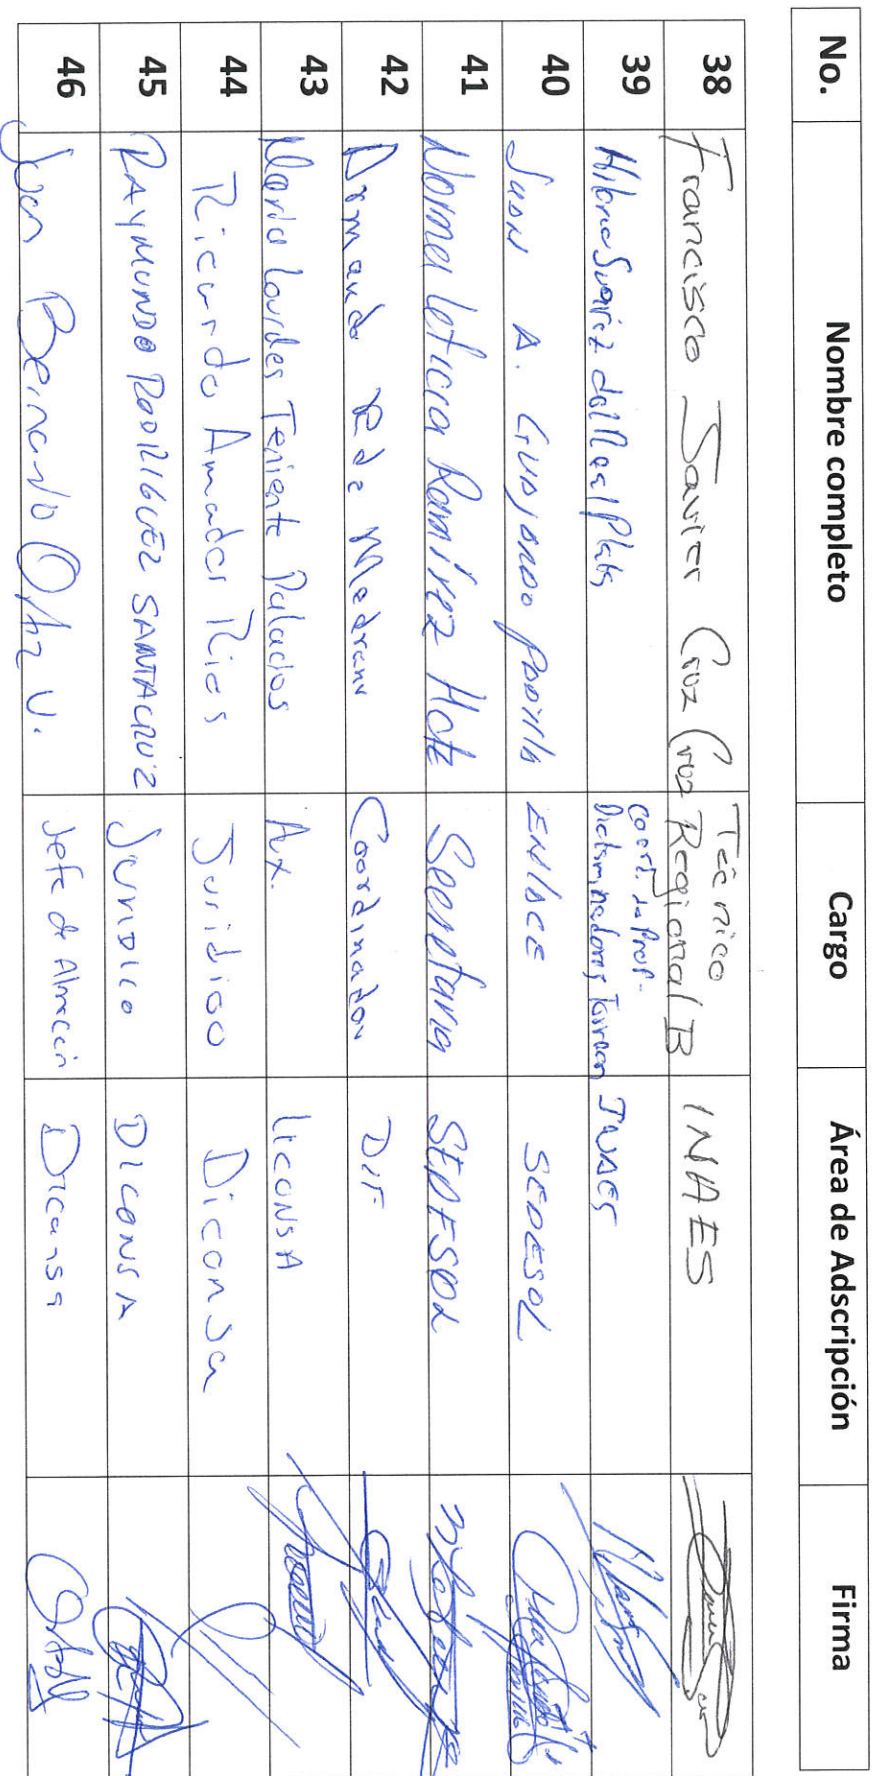 No. Nombre completo Cargo Área de Adscripción Firma
38 Francisco Javier Cruz Cruz Técnico Regional B INAES
39 Hilario Suárez del Real Plata Coord. de Prof. Dictaminadores INAES
40 JUAN A. GUAJARDO PADILLA ENLACE SEDESOL
41 Norma Leticia Ramírez Secretaria SEDESOL
42 Armando R de Medrano Coordinador DIF
43 María Lourdes Teniente Palacios Aux. LICONSA
44 Ricardo Amador Rios Juridico Diconsa
45 RAYMUNDO RODRIGUEZ SANTACRUZ JURIDICO DICONSA
46 Juan Bernardo Ortiz V. Jefe de Almacén Diconsa